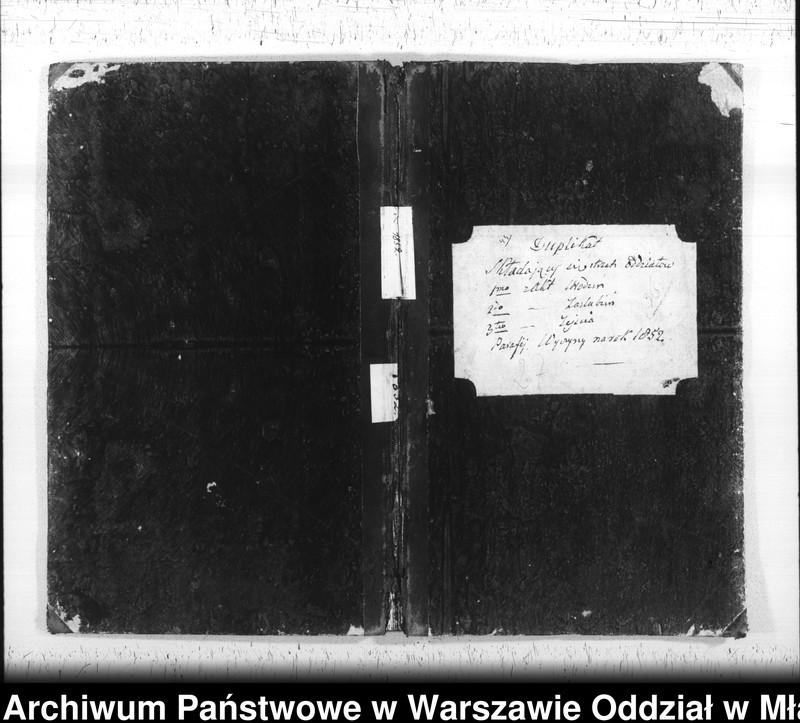 Duplikat
Składający w trzech Oddziałów
1mo Akt Urodzin
2do — Zaślubin
3tio — Zejścia
Parafij Wyszyny na rok 1852
1852
Archiwum Państwowe w Warszawie Oddział w Mła